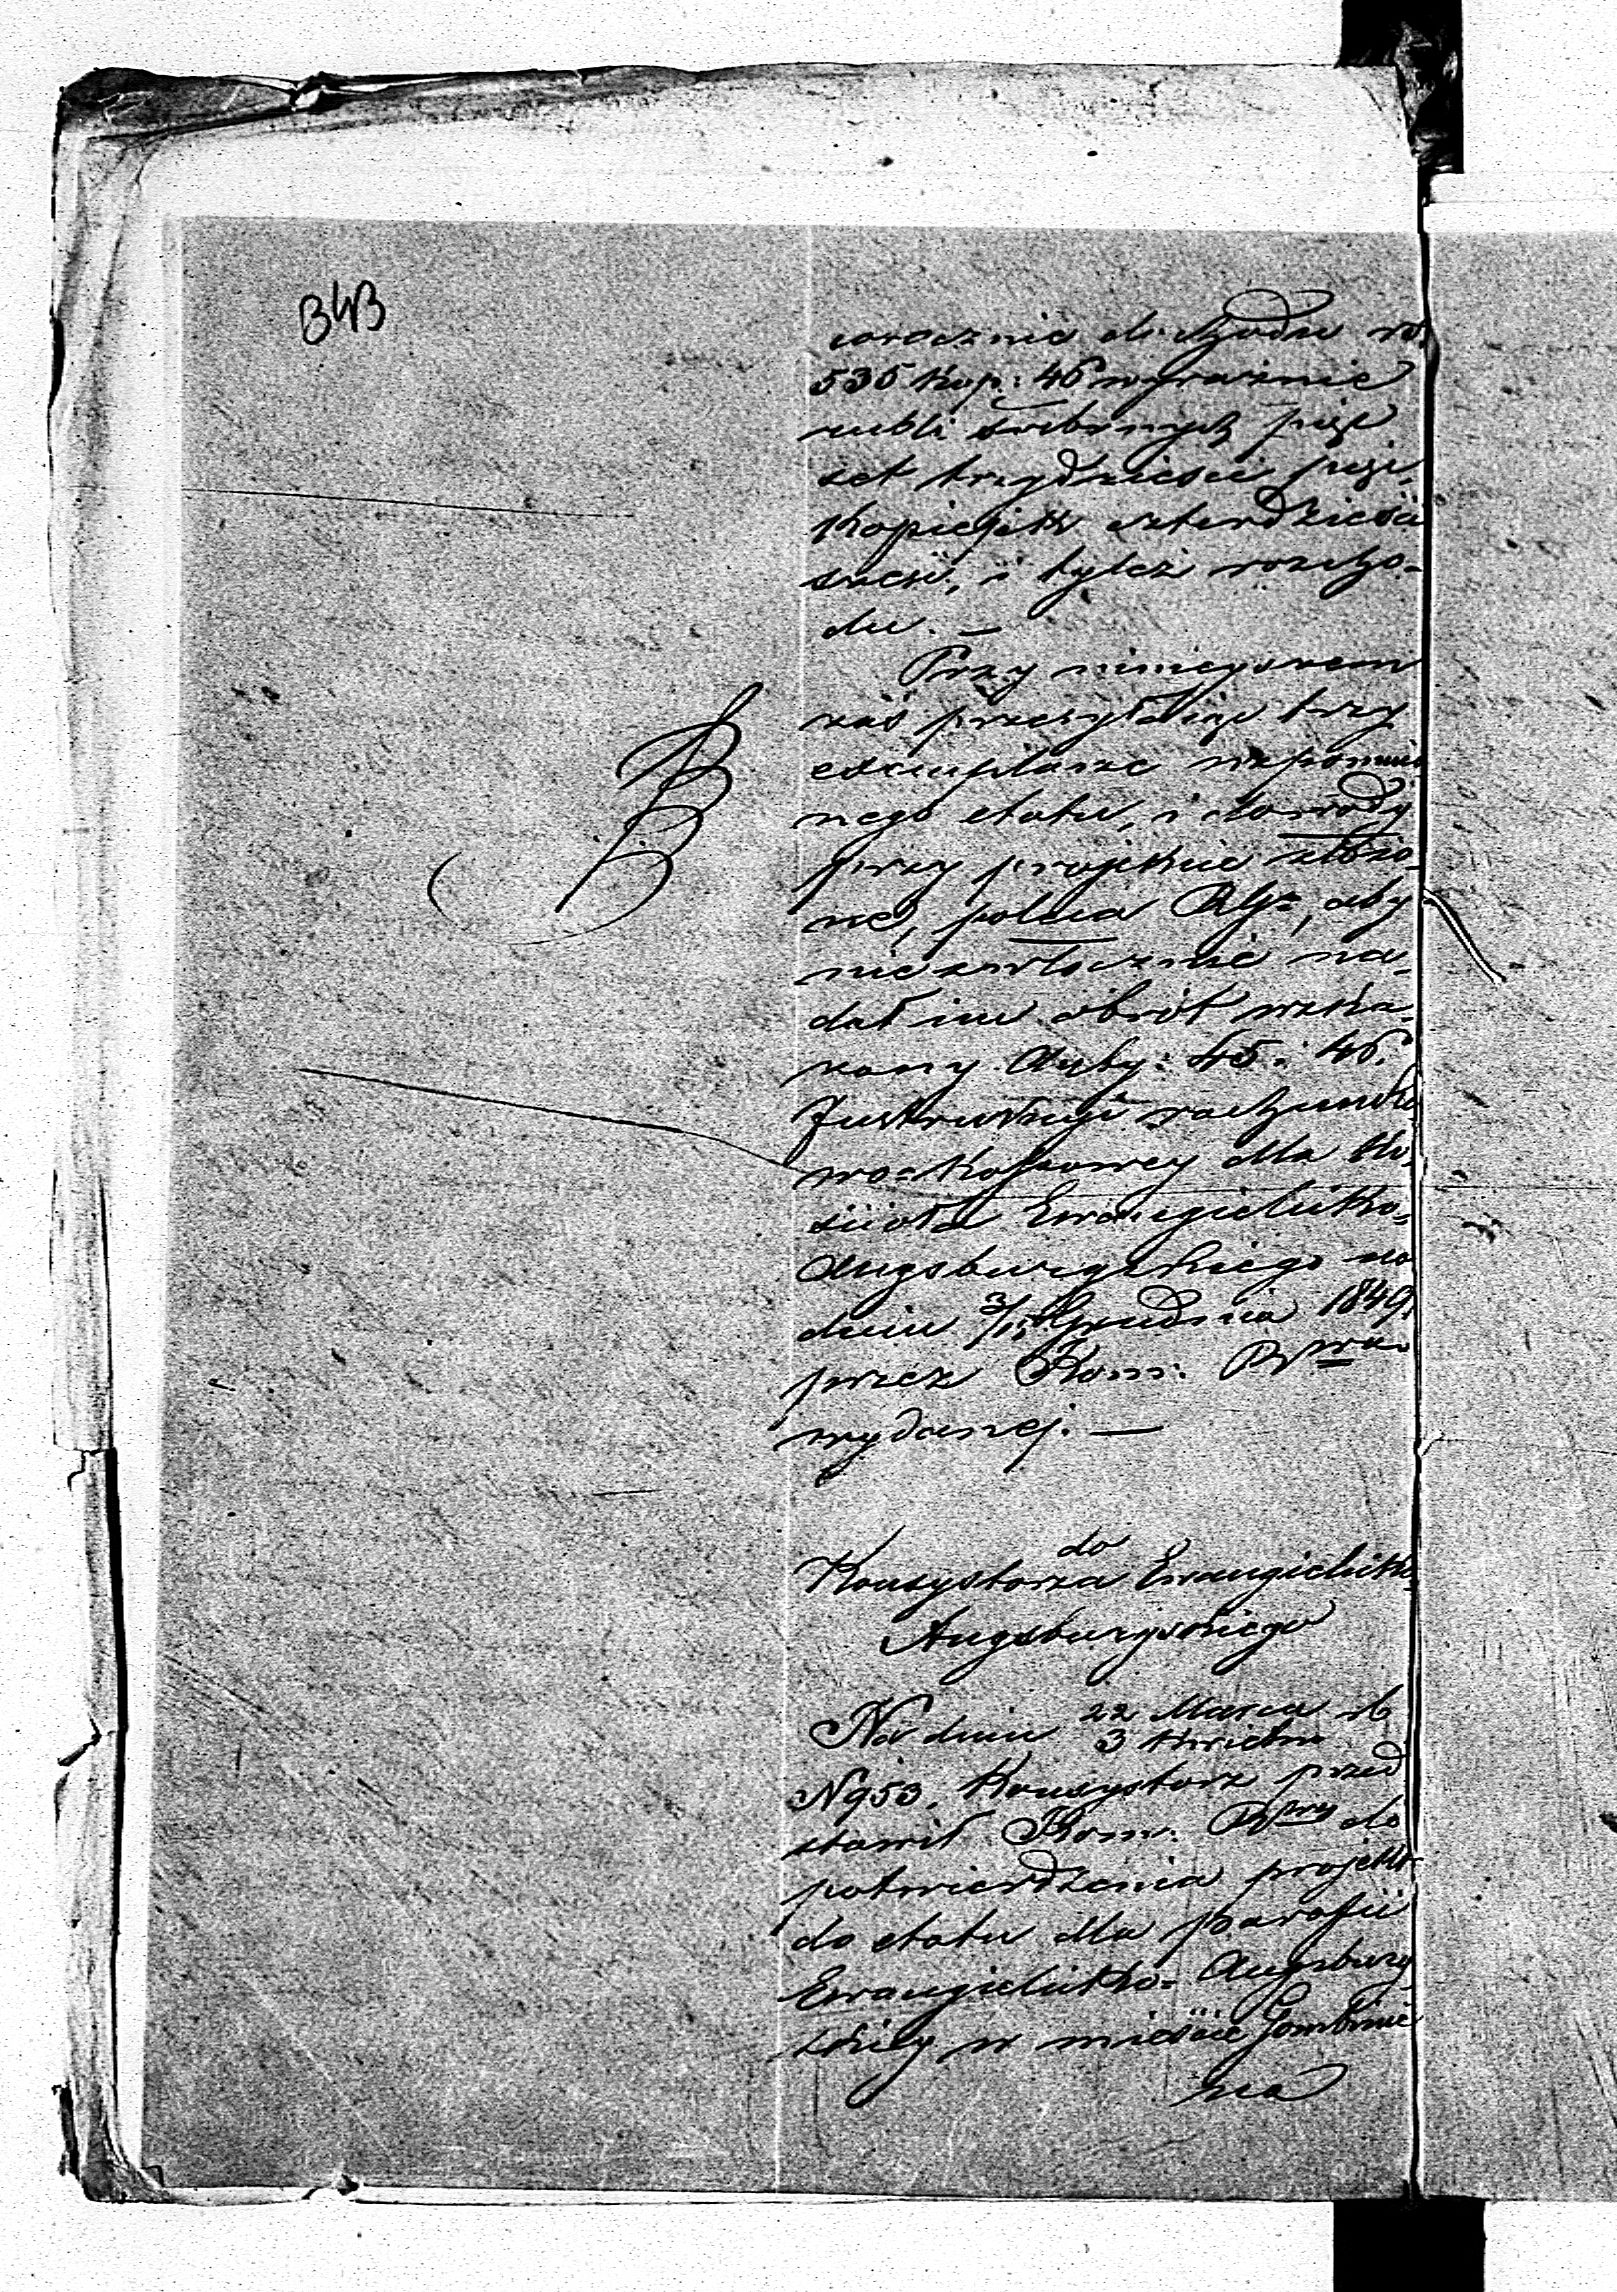 343
corocznie dochodu rs.
535 kop: 46 wyraźnie
rubli srebrnych pięć
set trzydzieści pięć,
kopiejek czterdzieści
sześć, i tyleż rozcho-
du. —
Przy niniejszem
zaś przesyłając trzy
exemplarze wspomnio
nego etatu, i dowody
przy projekcie złożo-
ne, poleca aby
niezwłocznie na-
dał im obrót wska-
zany Artby: 45 i 46.
Instrukcyi rachunko
wo-kassowey dla Ko-
ścioła Ewangielicko-
Augsburgskiego na
dniu 3/15 Grudnia 1849 r.
przez Kom: Rzwą
wydanej. —
do
Konsystorza Ewangielicko-
Augsburgskiego
Na dniu 22 Marca / 3 Kwietnia rb
N 953. Konsystorz przed
stawił Kom: Rzwey do
potwierdzenia projekt
do etatu dla parafii
Ewangielicko-Augsburg
skiey w mieście Gombinie
na